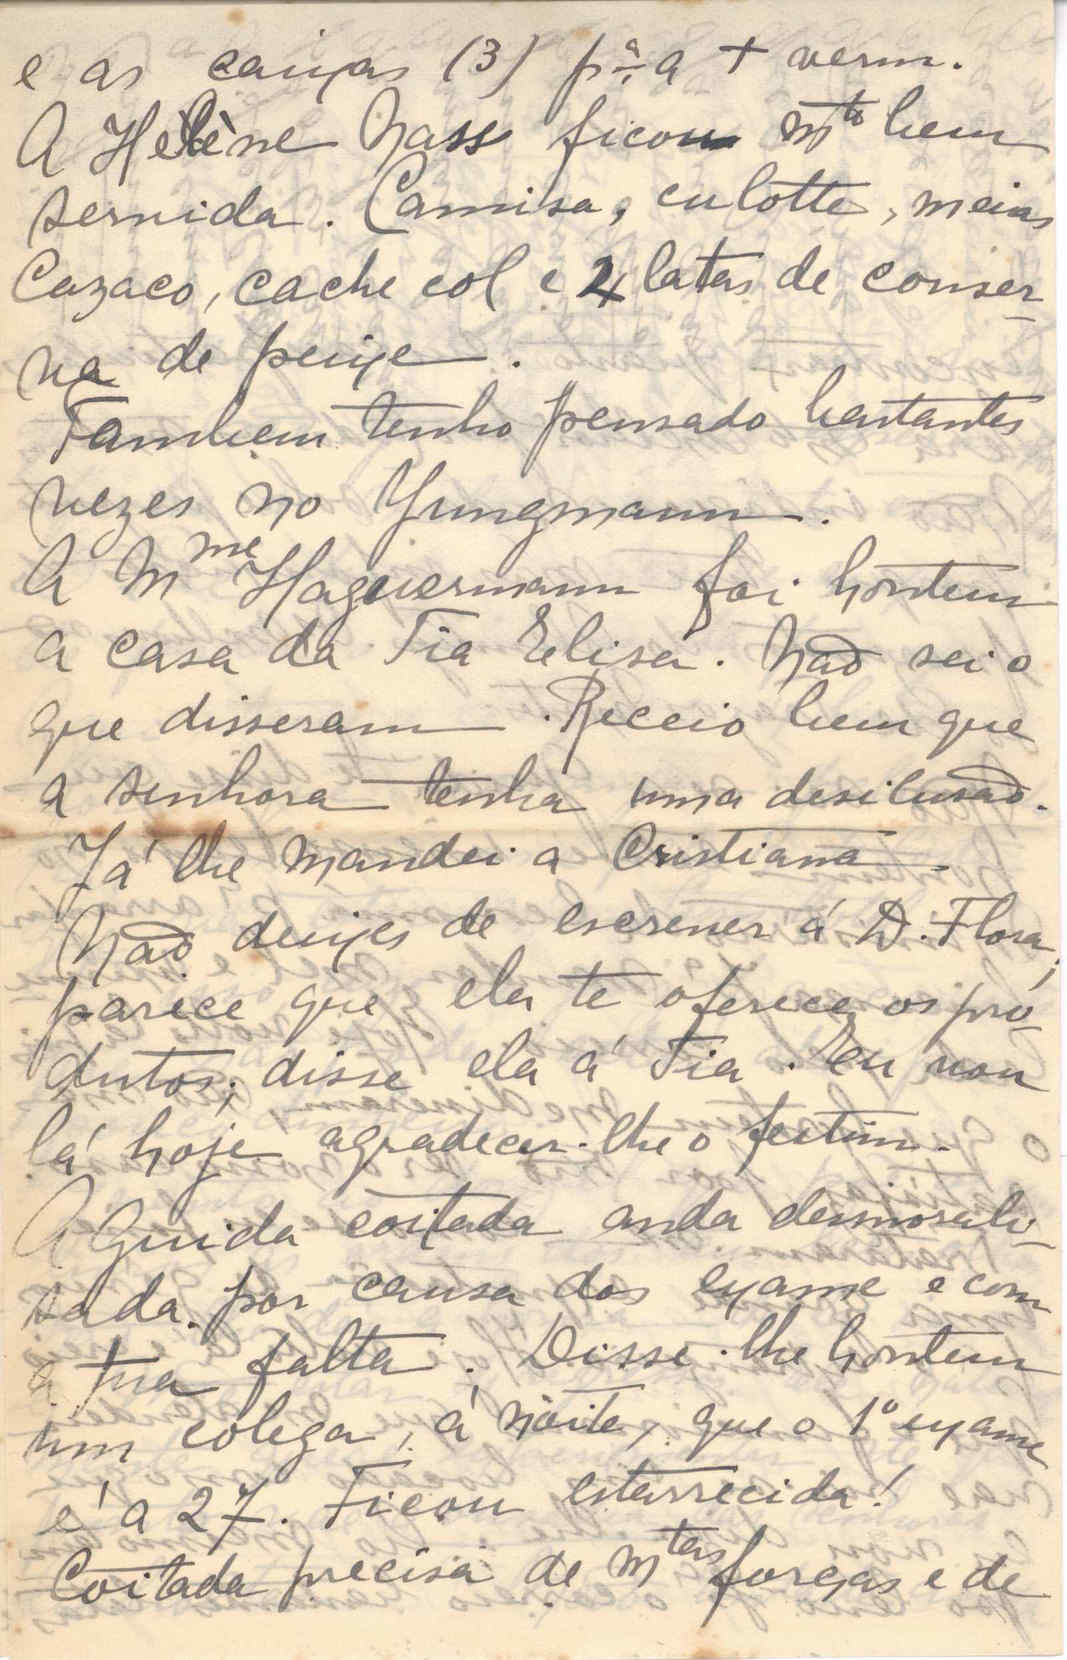 e as caixas (3) pª a + verm.
A Hélène Nass ficou mto bem
servida. Camisa, culotte, meias
Cazaco, cache col e 4 latas de conser-
va de peixe.
Tambem tenho pensado bastantes
vezes no Yungmann.
A Mme Haguermann foi hontem
a casa da Tia Elisa. Não sei o
que disseram. Receio bem que
a senhora tenha uma desilusão.
Já lhe mandei a Cristiana.
Não deixes de escrever á D. Flora,
parece que ela te oferece os pro-
dutos; disse ela á Tia. Eu vou
lá hoje agradecer-lhe o festim.
A Guida coitada anda desmorali-
sada por causa dos exame e com
a tua falta. Disse-lhe hontem
um colega, á noite, que o 1º exame
é a 27. Ficou estarrecida!
Coitada precisa de mtas forças e de